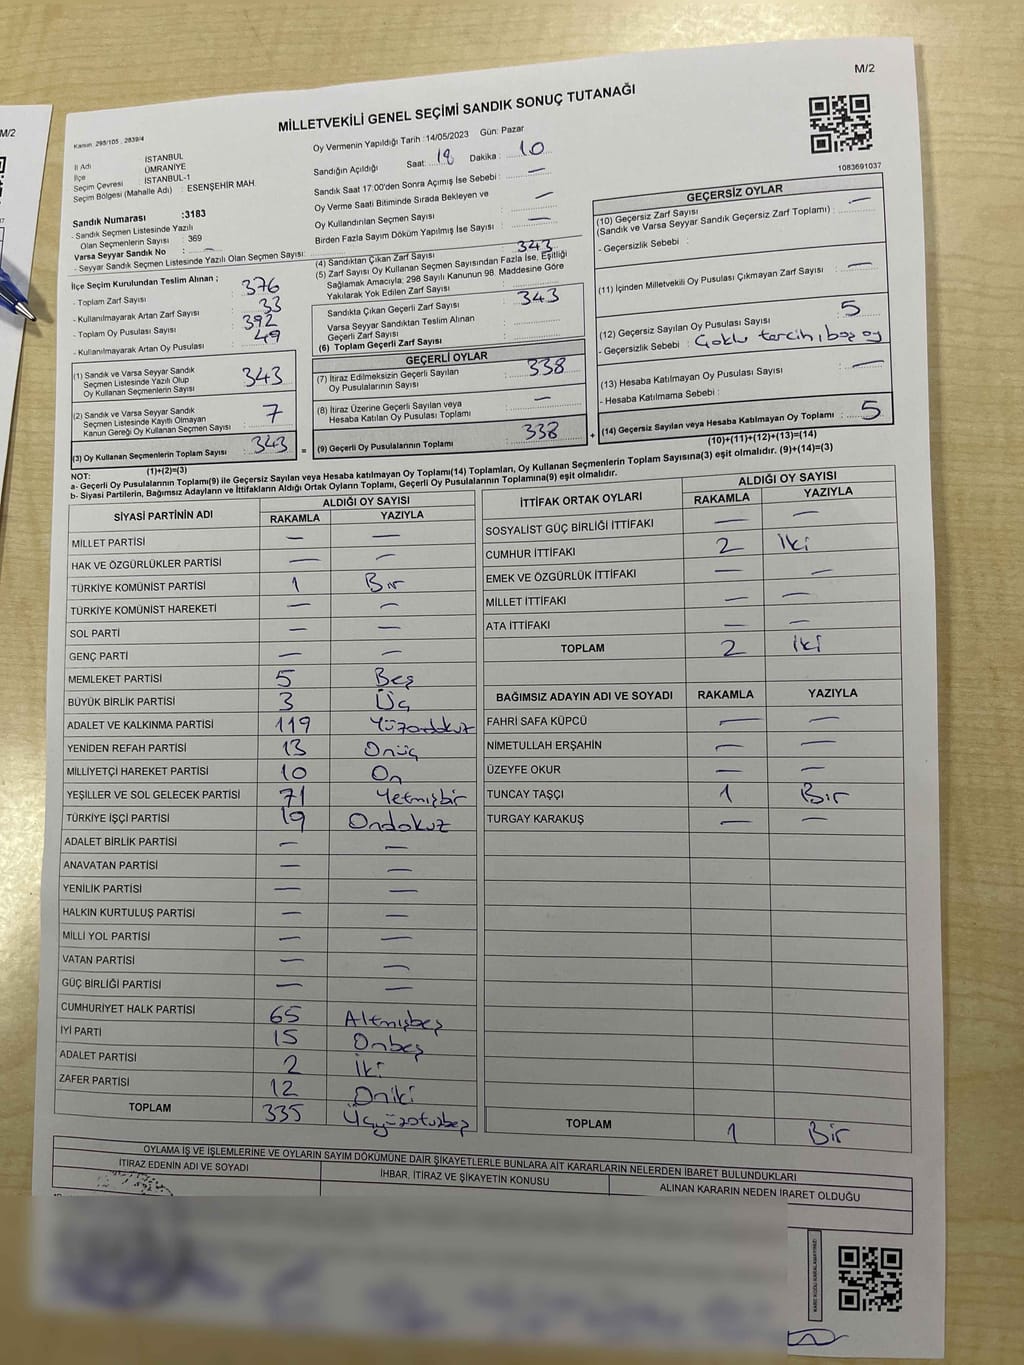 M/2
M/2
MİLLETVEKİLİ GENEL SEÇİMİ SANDIK SONUÇ TUTANAĞI
Kanun: 298/105 , 2839/4
1083691037
İl Adı İSTANBUL
İlçe ÜMRANİYE
Seçim Çevresi İSTANBUL-1
Seçim Bölgesi (Mahalle Adı) : ESENŞEHİR MAH.
Sandık Numarası :3183
- Sandık Seçmen Listesinde Yazılı
Olan Seçmenlerin Sayısı : 369
Varsa Seyyar Sandık No : —
- Seyyar Sandık Seçmen Listesinde Yazılı Olan Seçmen Sayısı:
Oy Vermenin Yapıldığı Tarih :14/05/2023 Gün: Pazar
Sandığın Açıldığı Saat: 18 Dakika : 10
Sandık Saat 17:00'den Sonra Açımış İse Sebebi : —
Oy Verme Saati Bitiminde Sırada Bekleyen ve
Oy Kullandırılan Seçmen Sayısı —
Birden Fazla Sayım Döküm Yapılmış İse Sayısı : —
İlçe Seçim Kurulundan Teslim Alınan ;
- Toplam Zarf Sayısı : 376
- Kullanılmayarak Artan Zarf Sayısı : 33
- Toplam Oy Pusulası Sayısı : 392
- Kullanılmayarak Artan Oy Pusulası : 49
(1) Sandık ve Varsa Seyyar Sandık
Seçmen Listesinde Yazılı Olup
Oy Kullanan Seçmenlerin Sayısı 343
(2) Sandık ve Varsa Seyyar Sandık
Seçmen Listesinde Kayıtlı Olmayan
Kanun Gereği Oy Kullanan Seçmen Sayısı : 7
(3) Oy Kullanan Seçmenlerin Toplam Sayısı : 343
(1)+(2)=(3)
(4) Sandıktan Çıkan Zarf Sayısı : 343
(5) Zarf Sayısı Oy Kullanan Seçmen Sayısından Fazla İse, Eşitliği
Sağlamak Amacıyla; 298 Sayılı Kanunun 98. Maddesine Göre
Yakılarak Yok Edilen Zarf Sayısı :
Sandıkla Çıkan Geçerli Zarf Sayısı : 343
Varsa Seyyar Sandıktan Teslim Alınan
Geçerli Zarf Sayısı :
(6) Toplam Geçerli Zarf Sayısı :
GEÇERLİ OYLAR
(7) İtiraz Edilmeksizin Geçerli Sayılan
Oy Pusulalarının Sayısı : 338
(8) İtiraz Üzerine Geçerli Sayılan veya
Hesaba Katılan Oy Pusulası Toplamı : —
= (9) Geçerli Oy Pusulalarının Toplamı : 338 +
GEÇERSİZ OYLAR
(10) Geçersiz Zarf Sayısı
(Sandık ve Varsa Seyyar Sandık Geçersiz Zarf Toplamı) : —
- Geçersizlik Sebebi :
(11) İçinden Milletvekili Oy Pusulası Çıkmayan Zarf Sayısı : —
(12) Geçersiz Sayılan Oy Pusulası Sayısı : 5
- Geçersizlik Sebebi : Çoklu tercih, boş oy
(13) Hesaba Katılmayan Oy Pusulası Sayısı : —
- Hesaba Katılmama Sebebi :
(14) Geçersiz Sayılan veya Hesaba Katılmayan Oy Toplamı : 5
(10)+(11)+(12)+(13)=(14)
NOT:
a- Geçerli Oy Pusulalarının Toplamı(9) ile Geçersiz Sayılan veya Hesaba katılmayan Oy Toplamı(14) Toplamları, Oy Kullanan Seçmenlerin Toplam Sayısına(3) eşit olmalıdır. (9)+(14)=(3)
b- Siyasi Partilerin, Bağımsız Adayların ve İttifakların Aldığı Ortak Oyların Toplamı, Geçerli Oy Pusulalarının Toplamına(9) eşit olmalıdır.
SİYASİ PARTİNİN ADI ALDIĞI OY SAYISI
RAKAMLA YAZIYLA
MİLLET PARTİSİ — —
HAK VE ÖZGÜRLÜKLER PARTİSİ — —
TÜRKİYE KOMÜNİST PARTİSİ 1 Bir
TÜRKİYE KOMÜNİST HAREKETİ — —
SOL PARTİ — —
GENÇ PARTİ — —
MEMLEKET PARTİSİ 5 Beş
BÜYÜK BİRLİK PARTİSİ 3 Üç
ADALET VE KALKINMA PARTİSİ 119 Yüzondokuz
YENİDEN REFAH PARTİSİ 13 Onüç
MİLLİYETÇİ HAREKET PARTİSİ 10 On
YEŞİLLER VE SOL GELECEK PARTİSİ 71 Yetmişbir
TÜRKİYE İŞÇİ PARTİSİ 19 Ondokuz
ADALET BİRLİK PARTİSİ — —
ANAVATAN PARTİSİ — —
YENİLİK PARTİSİ — —
HALKIN KURTULUŞ PARTİSİ — —
MİLLİ YOL PARTİSİ — —
VATAN PARTİSİ — —
GÜÇ BİRLİĞİ PARTİSİ — —
CUMHURİYET HALK PARTİSİ 65 Altmışbeş
İYİ PARTİ 15 Onbeş
ADALET PARTİSİ 2 İki
ZAFER PARTİSİ 12 Oniki
TOPLAM 335 Üçyüzotuzbeş
İTTİFAK ORTAK OYLARI ALDIĞI OY SAYISI
RAKAMLA YAZIYLA
SOSYALİST GÜÇ BİRLİĞİ İTTİFAKI — —
CUMHUR İTTİFAKI 2 İki
EMEK VE ÖZGÜRLÜK İTTİFAKI — —
MİLLET İTTİFAKI — —
ATA İTTİFAKI — —
TOPLAM 2 İki
BAĞIMSIZ ADAYIN ADI VE SOYADI RAKAMLA YAZIYLA
FAHRİ SAFA KÜPCÜ — —
NİMETULLAH ERŞAHİN — —
ÜZEYFE OKUR — —
TUNCAY TAŞÇI 1 Bir
TURGAY KARAKUŞ — —
TOPLAM 1 Bir
OYLAMA İŞ VE İŞLEMLERİNE VE OYLARIN SAYIM DÖKÜMÜNE DAİR ŞİKAYETLERLE BUNLARA AİT KARARLARIN NELERDEN İBARET BULUNDUKLARI
İTİRAZ EDENİN ADI VE SOYADI İHBAR, İTİRAZ VE ŞİKAYETİN KONUSU ALINAN KARARIN NEDEN İBARET OLDUĞU